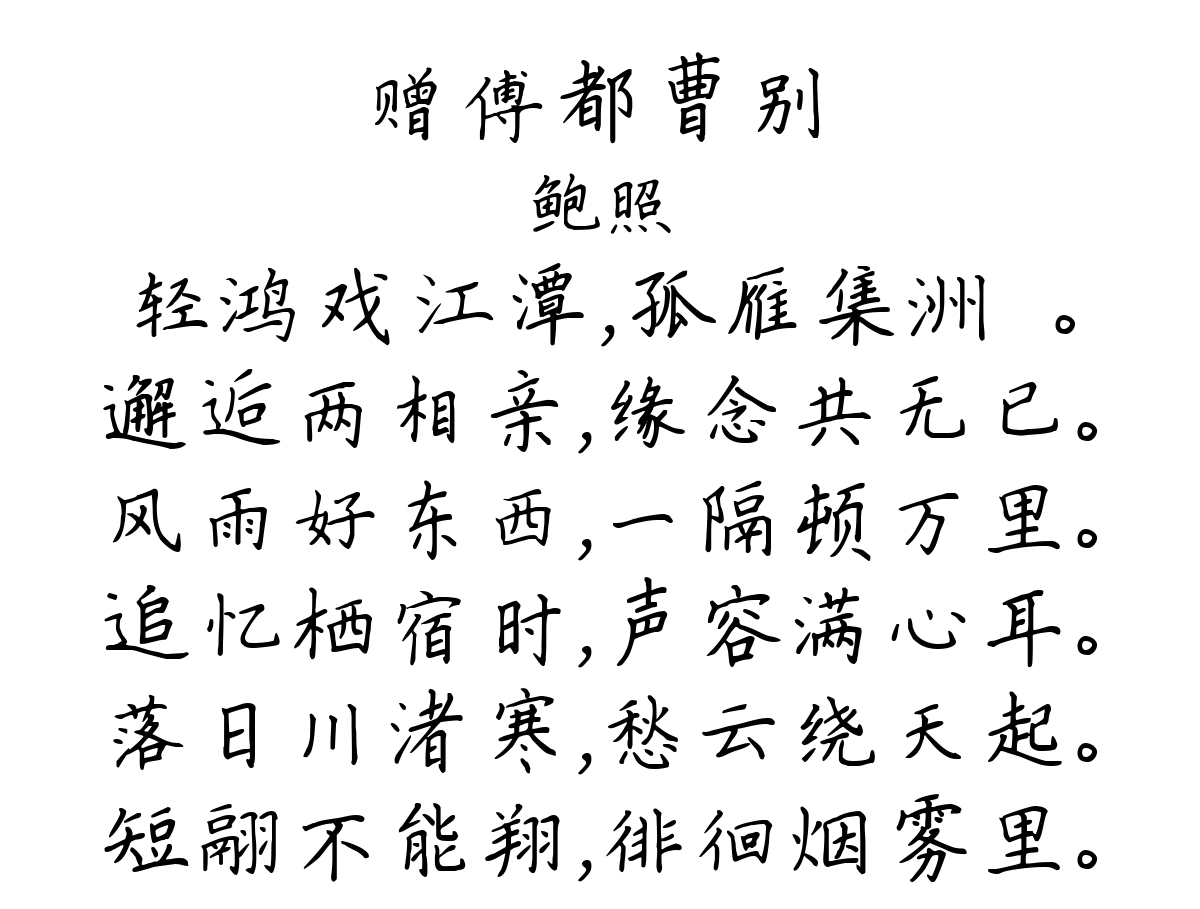 赠傅都曹别
鲍照
轻鸿戏江潭,孤雁集洲 。
邂逅两相亲,缘念共无已。
风雨好东西,一隔顿万里。
追忆栖宿时,声容满心耳。
落日川渚寒,愁云绕天起。
短翮不能翔,徘徊烟雾里。